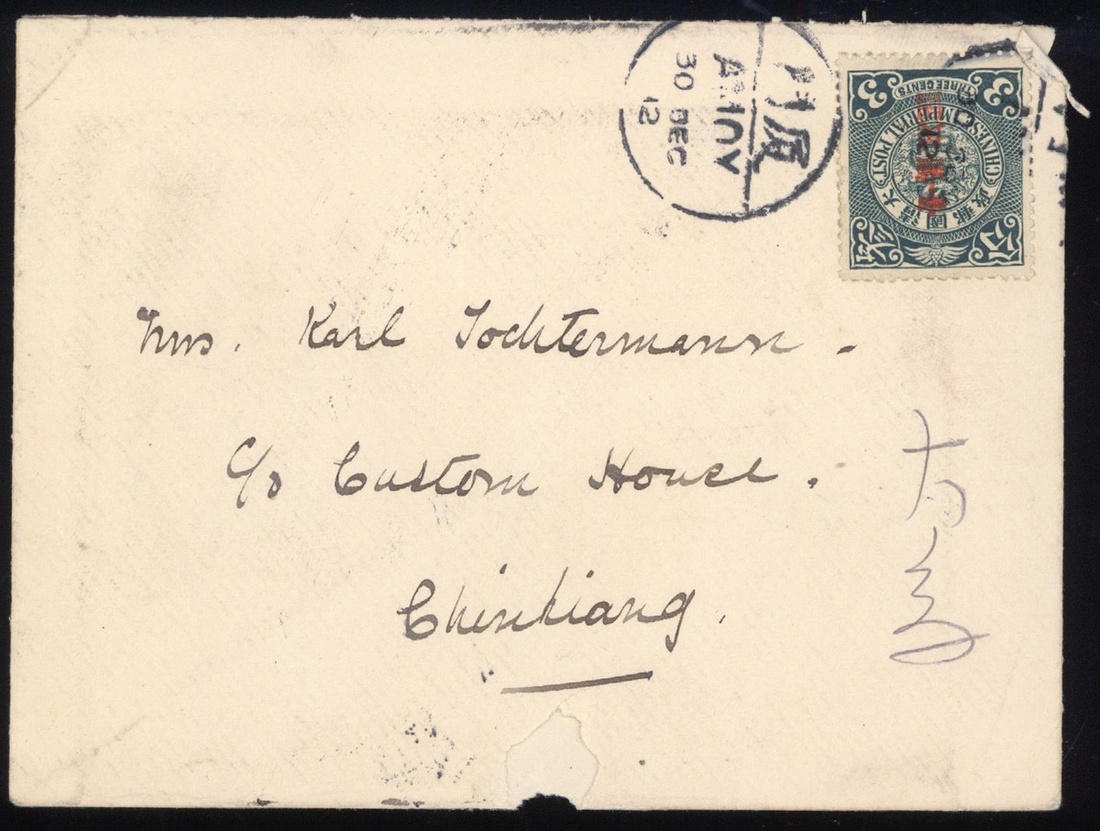 厦門
AMOY
30 DEC
12
3 THREE CENTS 3
CHINESE IMPERIAL POST
大清國郵政
Mrs. Karl Tochtermann -
c/o Custom House.
Chinkiang.